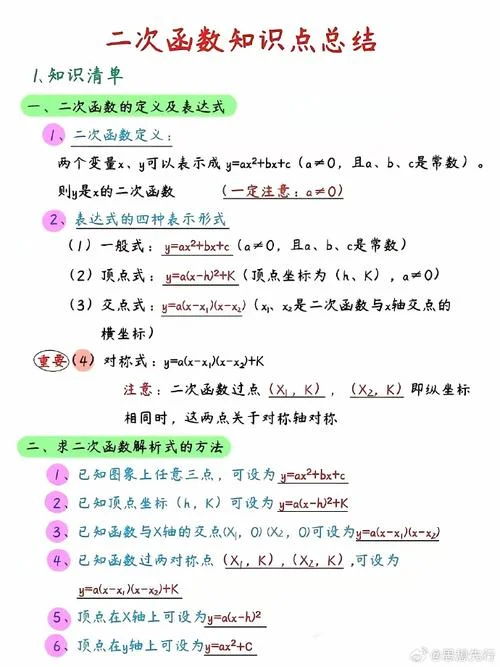 二次函数知识点总结
1.知识清单
一、二次函数的定义及表达式
1、二次函数定义:
两个变量x、y可以表示成 y=ax²+bx+c(a≠0,且a、b、c是常数)。
则y是x的二次函数 (一定注意:a≠0)
2、表达式的四种表示形式
(1)一般式:y=ax²+bx+c(a≠0,且a、b、c是常数)
(2)顶点式:y=a(x-h)²+K(顶点坐标为(h、K),a≠0)
(3)交点式:y=a(x-x₁)(x-x₂)(x₁、x₂是二次函数与x轴交点的
横坐标)
重要(4)对称式:y=a(x-x₁)(x-x₂)+K
注意:二次函数过点(X₁,K),(X₂,K)即纵坐标
相同时,这两点关于对称轴对称
二、求二次函数解析式的方法
1、已知图象上任意三点,可设为 y=ax²+bx+c
2、已知顶点坐标(h,K)可设为 y=a(x-h)²+K
3、已知函数与X轴的交点(X₁,0)(X₂,0)可设为y=a(x-x₁)(x-x₂)
4、已知函数过两对称点(X₁,K),(X₂,K),可设为
y=a(x-x₁)(x-x₂)+K
5、顶点在X轴上可设为y=a(x-h)²
6、顶点在y轴上可设为y=ax²+C
@思想先行